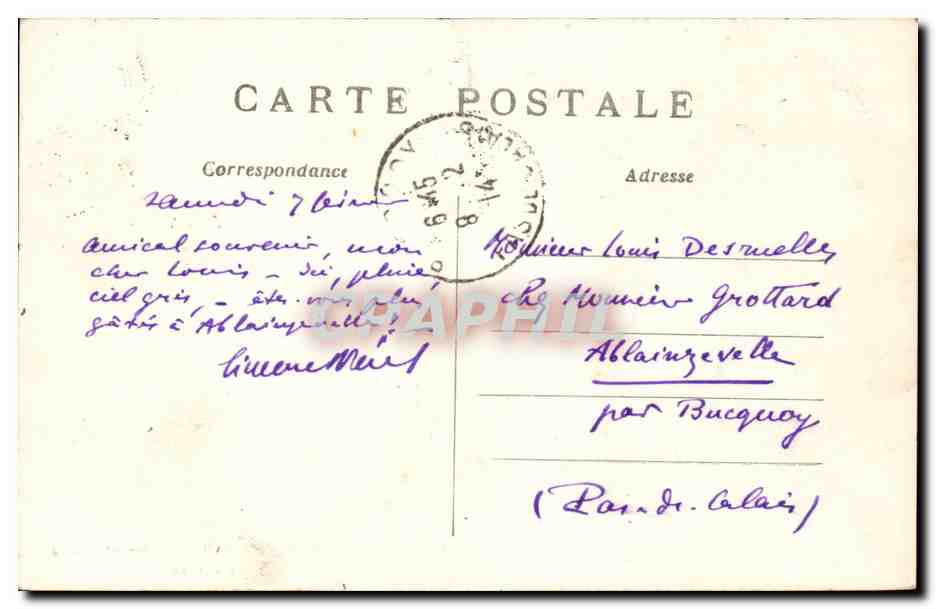 CARTE POSTALE
Correspondance
Adresse
samedi 7 février
amical souvenir, mon
cher Louis - Ici, pluie,
ciel gris, - êtes-vous plus
gâtés à Ablainzevelle? -
Simone
Monsieur Louis Desmelles
chez Monsieur Grottard
Ablainzevelle
par Bucquoy
(Pas-de-Calais)
6 M45
8 2
14
CPAPHIL